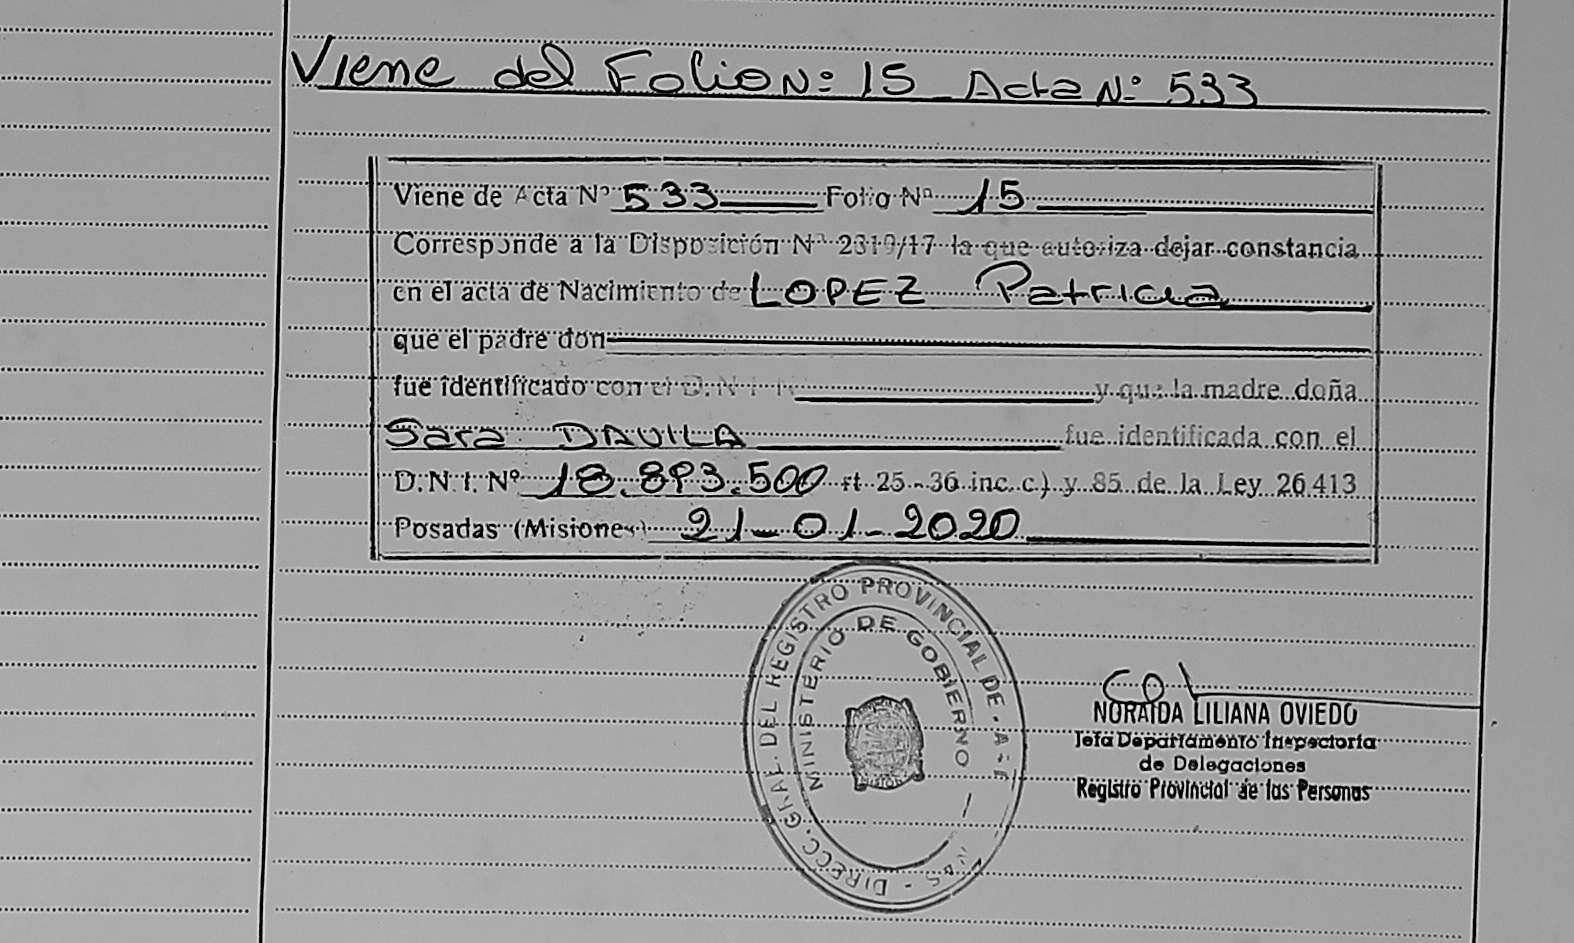 Viene del Folio Nº 15 Acta Nº 533
Viene de Acta Nº 533 Folio Nº 15
Corresponde a la Disposición Nº 2319/17 la que autoriza dejar constancia
en el acta de Nacimiento de LOPEZ Patricia
que el padre don
fue identificado con el D.N.I. N y que la madre doña
Sara DAVILA fue identificada con el
D.N.I. Nº 18.893.500 rt 25 - 36 inc. c) y 85 de la Ley 26.413
Posadas (Misiones) 21-01-2020
DIRECC. GRAL. DEL REGISTRO PROVINCIAL DE
MINISTERIO DE GOBIERNO
NORAIDA LILIANA OVIEDO
Jefa Departamento Inspectoria
de Delegaciones
Registro Provincial de las Personas